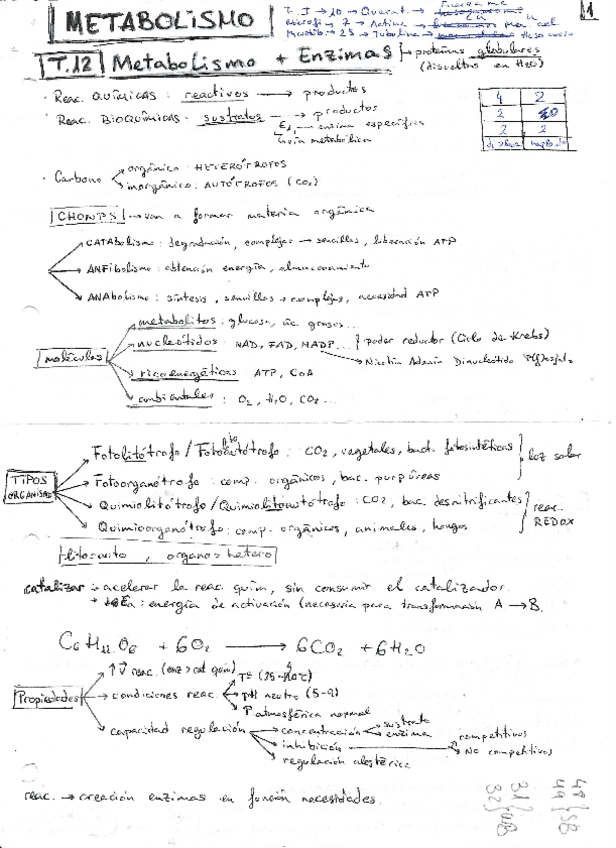 METABOLISMO
T. I → 10 → Querat.
Microfi → 7 → Actina
Microtb → 25 → Tubulina
1
T.12 Metabolismo + Enzimas } → proteínas globulares
(disueltas en H2O)
· Reac. QUÍMICAS: reactivos → productos
· Reac. BIOQUÍMICAS: sustratos → productos
enzima específica
Guía metabólica
4 2
2
2 2
· Carbono orgánico: HETERÓTROFOS
inorgánico: AUTÓTROFOS (CO2)
CHONPS → van a formar materia orgánica
CATAbolismo: degradación, complejas → sencillas, liberación ATP
ANFIbolismo: obtención energía, almacenamiento
ANAbolismo: síntesis, sencillos → complejos, necesidad ATP
moléculas
metabolitos: glucosa, ác. grasos...
nucleótidos: NAD, FAD, NADP... } poder reductor (Ciclo de Krebs)
→ Nicotín Adenín Dinucleótido
ricoenergéticas ATP, CoA
ambientales: O2, H2O, CO2...
TIPOS ORGANISMO
Fotolitótrofo / Fotolitoautótrofo: CO2, vegetales, bact. fotosintéticas } luz solar
Fotoorganótrofo: comp. orgánicos, bac. purpúreas
Quimiolitótrofo / Quimiolitoautótrofo: CO2, bac. desnitrificantes } reac. REDOX
Quimioorganótrofo: comp. orgánicos, animales, hongos
lito=auto, organo=hetero
catalizar: acelerar la reac. quím, sin consumir el catalizador.
Ea: energía de activación (necesaria para transformación A → B.
C6H12O6 + 6O2 → 6CO2 + 6H2O
Propiedades
↑V reac. (enz > cat quím)
condiciones reac. Tª
pH neutro (5-9)
P atmosférica normal
capacidad regulación concentración sustrato
enzima
inhibición competitivos
No competitivos
regulación alostérica
reac. → creación enzimas en función necesidades.
48
49 } SB
31
32 } UB